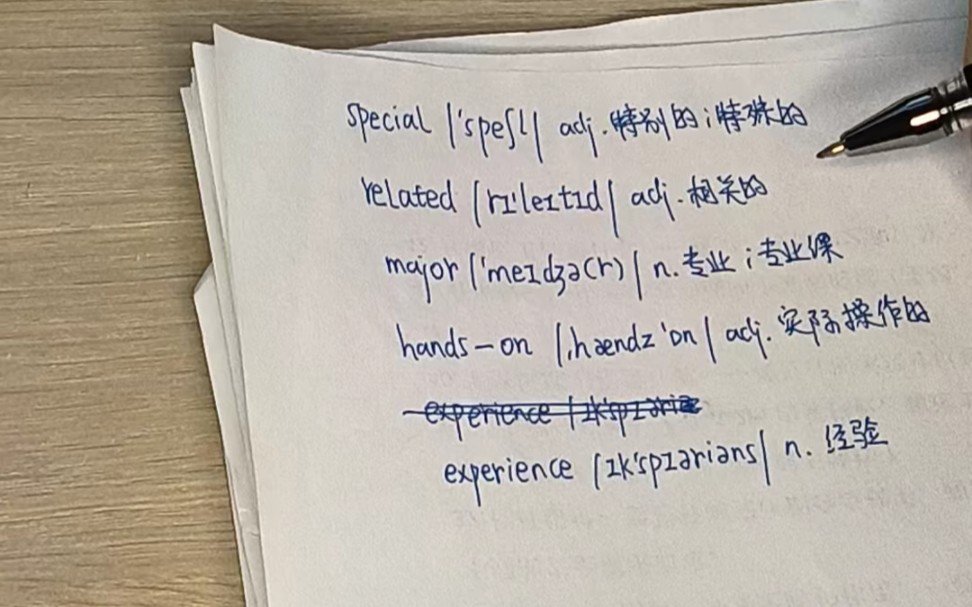 special |'speʃl| adj.特别的;特殊的
related |rɪ'leɪtɪd| adj.相关的
major |'meɪdʒə(r)| n.专业;专业课
hands-on |ˌhændz'ɒn| adj.实际操作的
experience |ɪk'spɪəriə
experience |ɪk'spɪəriəns| n.经验